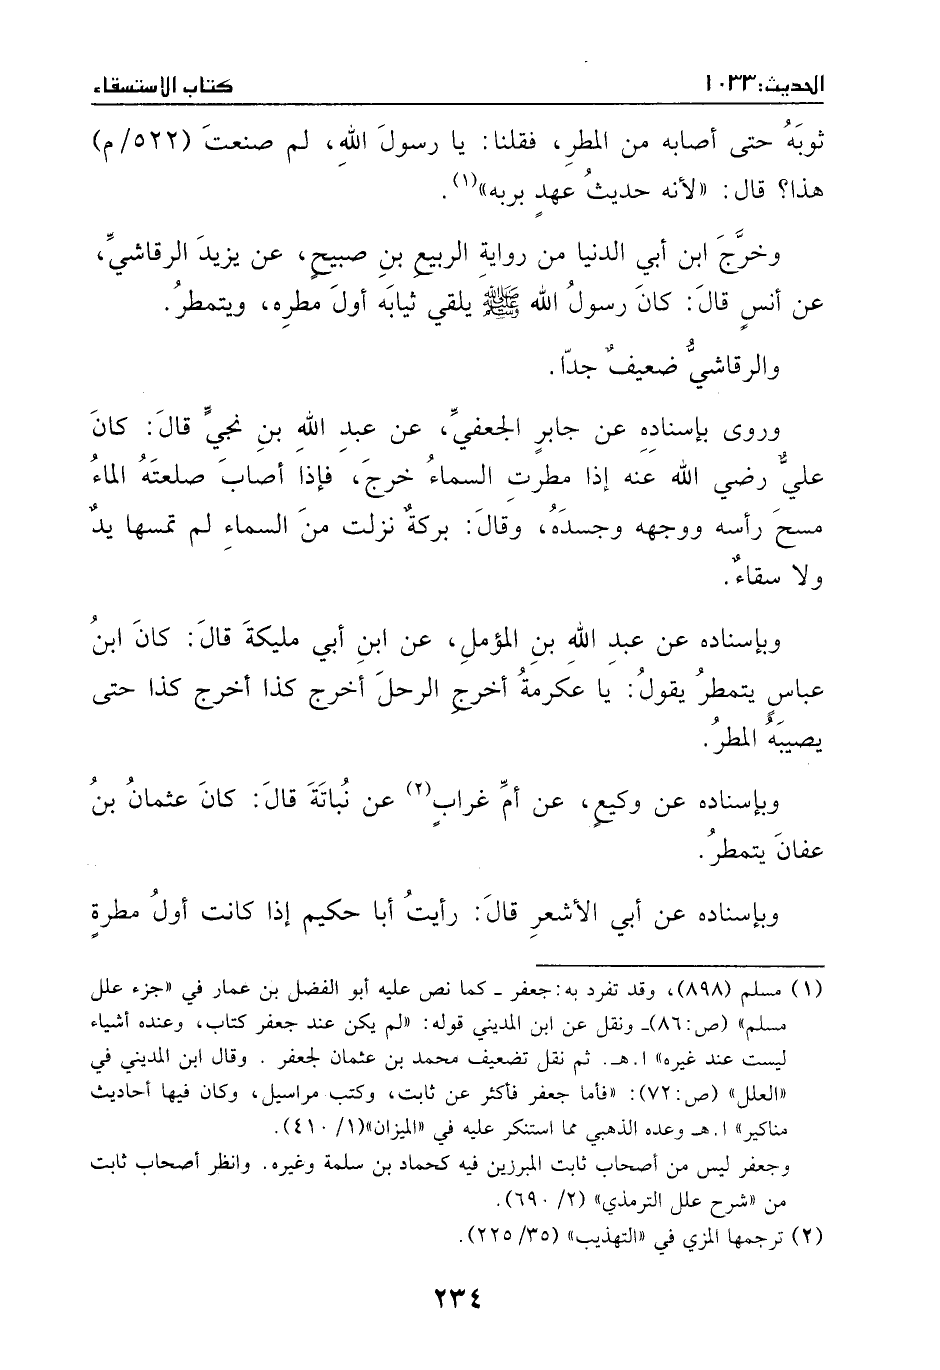 الحديث: ١٠٣٣ كتاب الاستسقاء
ثوبَهُ حتى أصابه من المطرِ، فقلنا: يا رسولَ اللهِ، لم صنعتَ (٥٢٢/م)
هذا؟ قال: «لأنه حديثُ عهدٍ بربه»(١).
وخرَّجَ ابن أبي الدنيا من روايةِ الربيعِ بنِ صبيحٍ، عن يزيدَ الرقاشيِّ،
عن أنسٍ قالَ: كانَ رسولُ الله ﷺ يلقي ثيابَه أولَ مطرِه، ويتمطرُ.
والرقاشيُّ ضعيفٌ جدّا.
وروى بإسنادِهِ عن جابرٍ الجعفيِّ، عن عبدِ اللهِ بنِ نجيٍّ قالَ: كانَ
عليٌّ رضي الله عنه إذا مطرتِ السماءُ خرجَ، فإذا أصابَ صلعتَهُ الماءُ
مسحَ رأسه ووجهه وجسدَهُ، وقالَ: بركةٌ نزلت منَ السماءِ لم تمسها يدٌ
ولا سقاءٌ.
وبإسناده عن عبدِ اللهِ بنِ المؤملِ، عن ابنِ أبي مليكةَ قالَ: كانَ ابنُ
عباسٍ يتمطرُ يقولُ: يا عكرمةُ أخرجِ الرحلَ أخرج كذا أخرج كذا حتى
يصيبَهُ المطرُ.
وبإسناده عن وكيعٍ، عن أمِّ غرابٍ(٢) عن نُباتَةَ قالَ: كانَ عثمانُ بنُ
عفانَ يتمطرُ.
وبإسناده عن أبي الأشعرِ قالَ: رأيتُ أبا حكيم إذا كانت أولُ مطرةٍ
(١) مسلم (٨٩٨)، وقد تفرد به: جعفر ـ كما نص عليه أبو الفضل بن عمار في «جزء علل
مسلم» (ص: ٨٦)ـ ونقل عن ابن المديني قوله: «لم يكن عند جعفر كتاب، وعنده أشياء
ليست عند غيره» ا.هـ. ثم نقل تضعيف محمد بن عثمان لجعفر . وقال ابن المديني في
«العلل» (ص: ٧٢): «فأما جعفر فأكثر عن ثابت، وكتب مراسيل، وكان فيها أحاديث
مناكير» ا.هـ وعده الذهبي مما استنكر عليه في «الميزان»(١/ ٤١٠).
وجعفر ليس من أصحاب ثابت المبرزين فيه كحماد بن سلمة وغيره. وانظر أصحاب ثابت
من «شرح علل الترمذي» (٢/ ٦٩٠).
(٢) ترجمها المزي في «التهذيب» (٣٥/ ٢٢٥).
٢٣٤